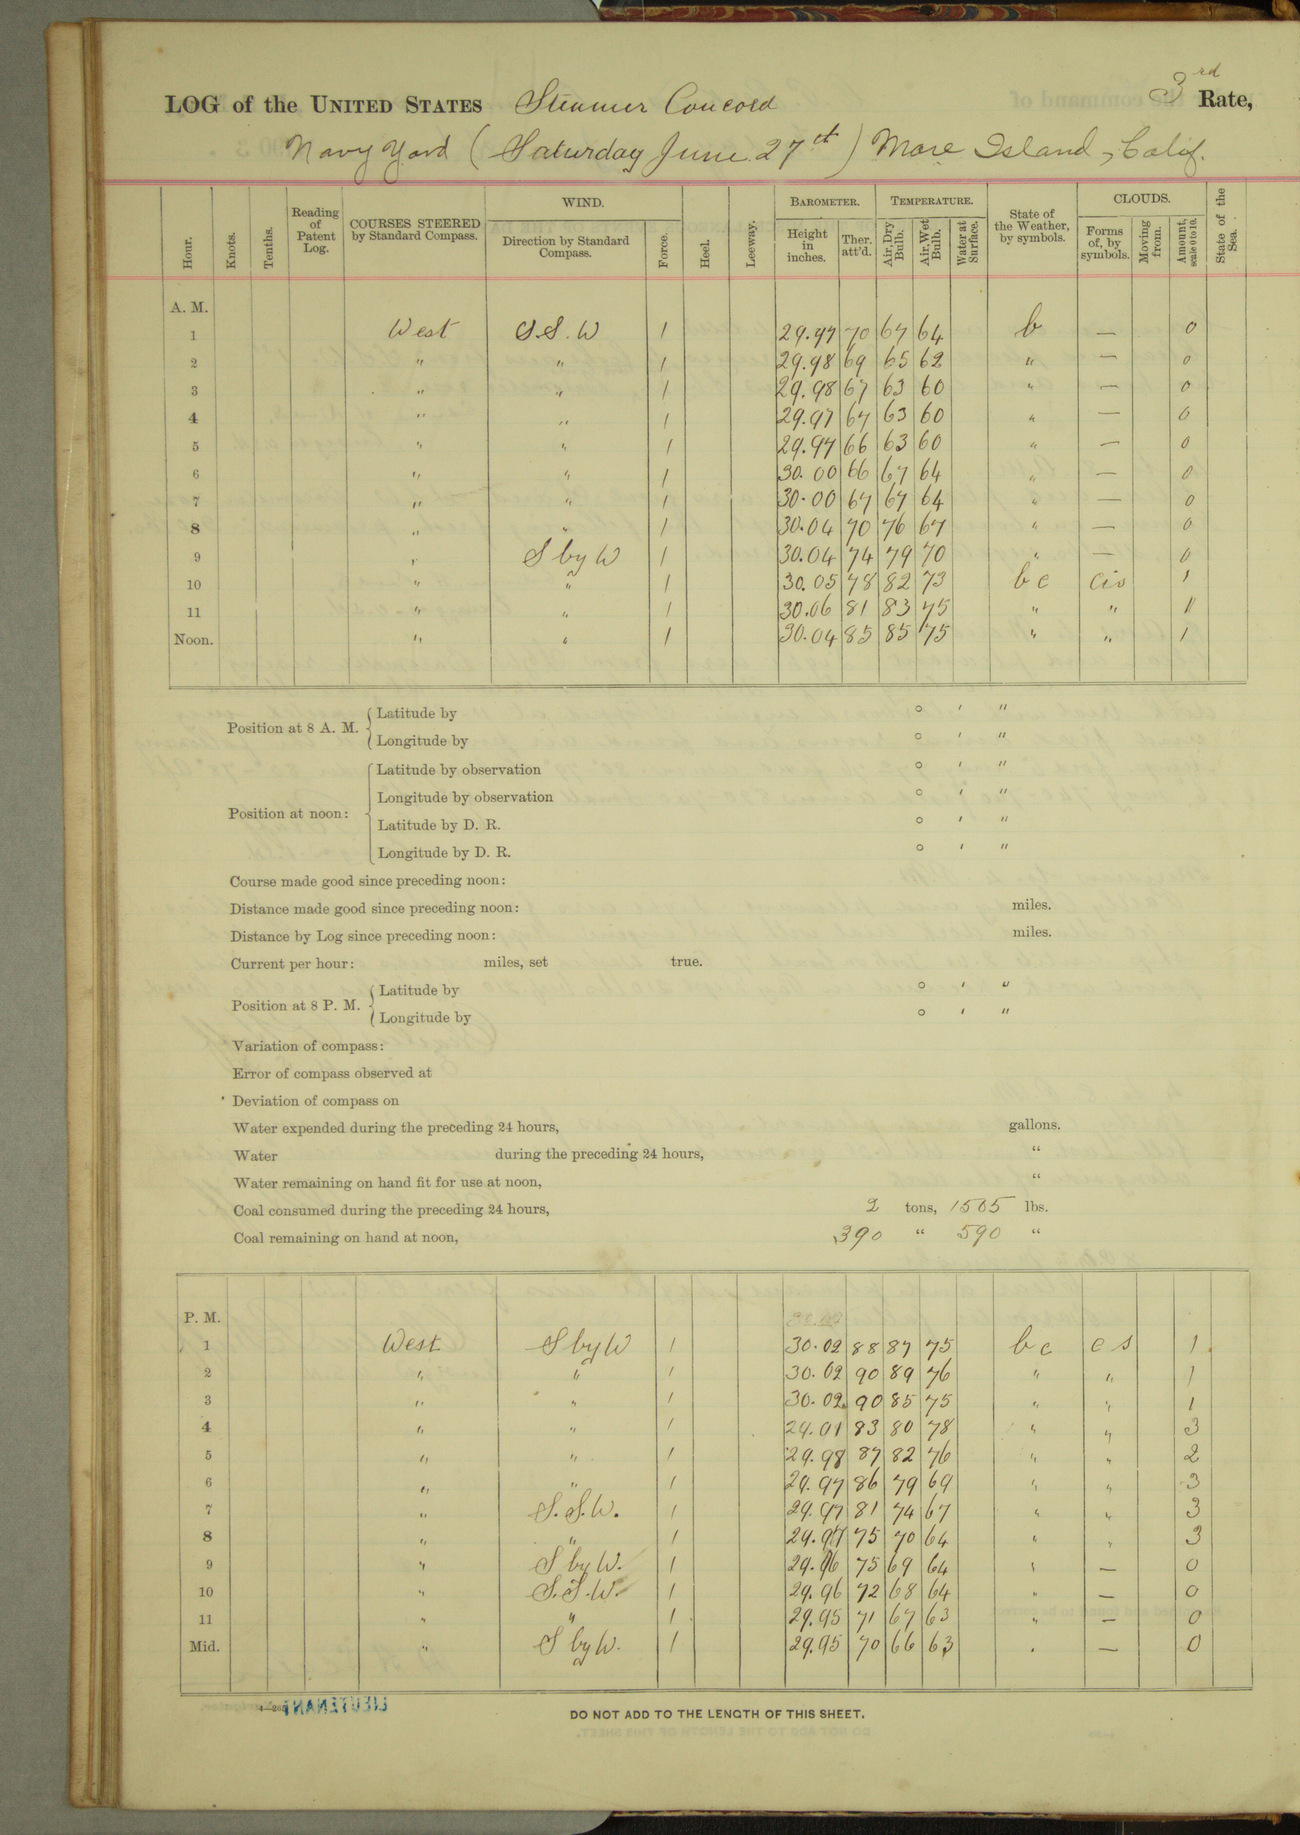 3rd
LOG of the UNITED STATES Steamer Concord Rate,
Navy Yard (Saturday June 27th) Mare Island, Calif.
Hour. Knots. Tenths. Reading of Patent Log. COURSES STEERED by Standard Compass. WIND. Direction by Standard Compass. Force. Heel. Leeway. BAROMETER. Height in inches. Ther. att'd. TEMPERATURE. Air, Dry Bulb. Air, Wet Bulb. Water at Surface. State of the Weather, by symbols. CLOUDS. Forms of, by symbols. Moving from. Amount, scale 0 to 10. State of the Sea.
A. M.
1 West S.S.W 1 29.97 70 67 64 b — 0
2 " " 1 29.98 69 65 62 " — 0
3 " " 1 29.98 67 63 60 " — 0
4 " " 1 29.97 67 63 60 " — 0
5 " " 1 29.97 66 63 60 " — 0
6 " " 1 30.00 66 67 64 " — 0
7 " " 1 30.00 67 67 64 " — 0
8 " " 1 30.04 70 76 67 " — 0
9 " S by W 1 30.04 74 79 70 " — 0
10 " " 1 30.05 78 82 73 b c cis 1
11 " " 1 30.06 81 83 75 " " 1
Noon. " " 1 30.04 85 85 75 " " 1
Position at 8 A. M. Latitude by ° ′ ″
Longitude by ° ′ ″
Position at noon: Latitude by observation ° ′ ″
Longitude by observation ° ′ ″
Latitude by D. R. ° ′ ″
Longitude by D. R. ° ′ ″
Course made good since preceding noon:
Distance made good since preceding noon: miles.
Distance by Log since preceding noon: miles.
Current per hour: miles, set true.
Position at 8 P. M. Latitude by ° ′ ″
Longitude by ° ′ ″
Variation of compass:
Error of compass observed at
Deviation of compass on
Water expended during the preceding 24 hours, gallons.
Water during the preceding 24 hours, "
Water remaining on hand fit for use at noon, "
Coal consumed during the preceding 24 hours, 2 tons, 1565 lbs.
Coal remaining on hand at noon, 390 " 590 "
P. M.
1 West S by W 1 30.02 88 87 75 b c c s 1
2 " " 1 30.02 90 89 76 " " 1
3 " " 1 30.02 90 85 75 " " 1
4 " " 1 29.01 83 80 78 " " 3
5 " " 1 29.98 87 82 76 " " 2
6 " " 1 29.97 86 79 69 " " 3
7 " S.S.W. 1 29.97 81 74 67 " " 3
8 " " 1 29.97 75 70 64 " " 3
9 " S by W. 1 29.96 75 69 64 " — 0
10 " S.S.W. 1 29.96 72 68 64 " — 0
11 " " 1 29.95 71 67 63 " — 0
Mid. " S by W. 1 29.95 70 66 63 " — 0
LIEUTENANT
DO NOT ADD TO THE LENGTH OF THIS SHEET.